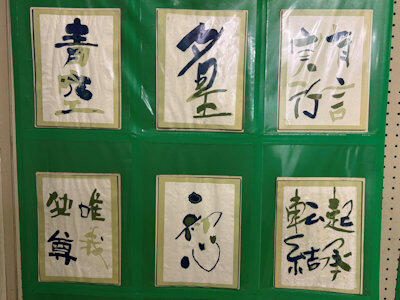 青空
有言
実行
唯我
独尊
初心
起承
転結